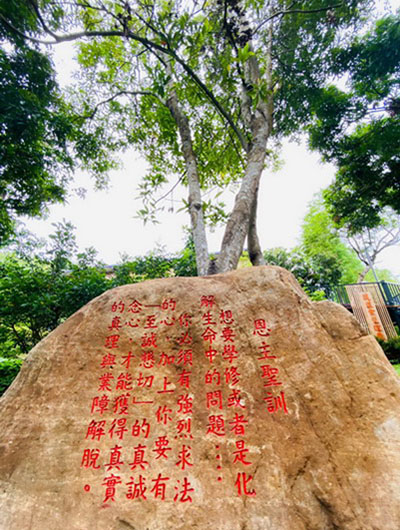 恩主聖訓
想要學修或者是化
解生命中的問題…
你必須有強烈求法
的心加上你要有
「至誠懇切」的真誠
念心，才能獲得真實
的真理與業障解脫。